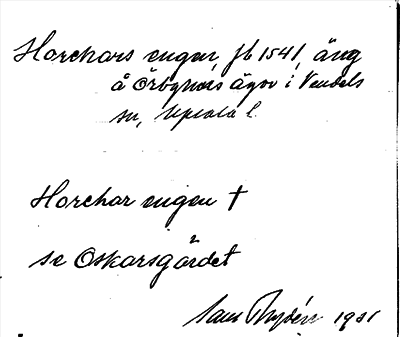 Horchars engen, jb 1541, äng
å Örbyhus ägor i Vendels
sn, Upsala l.
Horchar engen †
se Oskarsgärdet
Rydén 1931